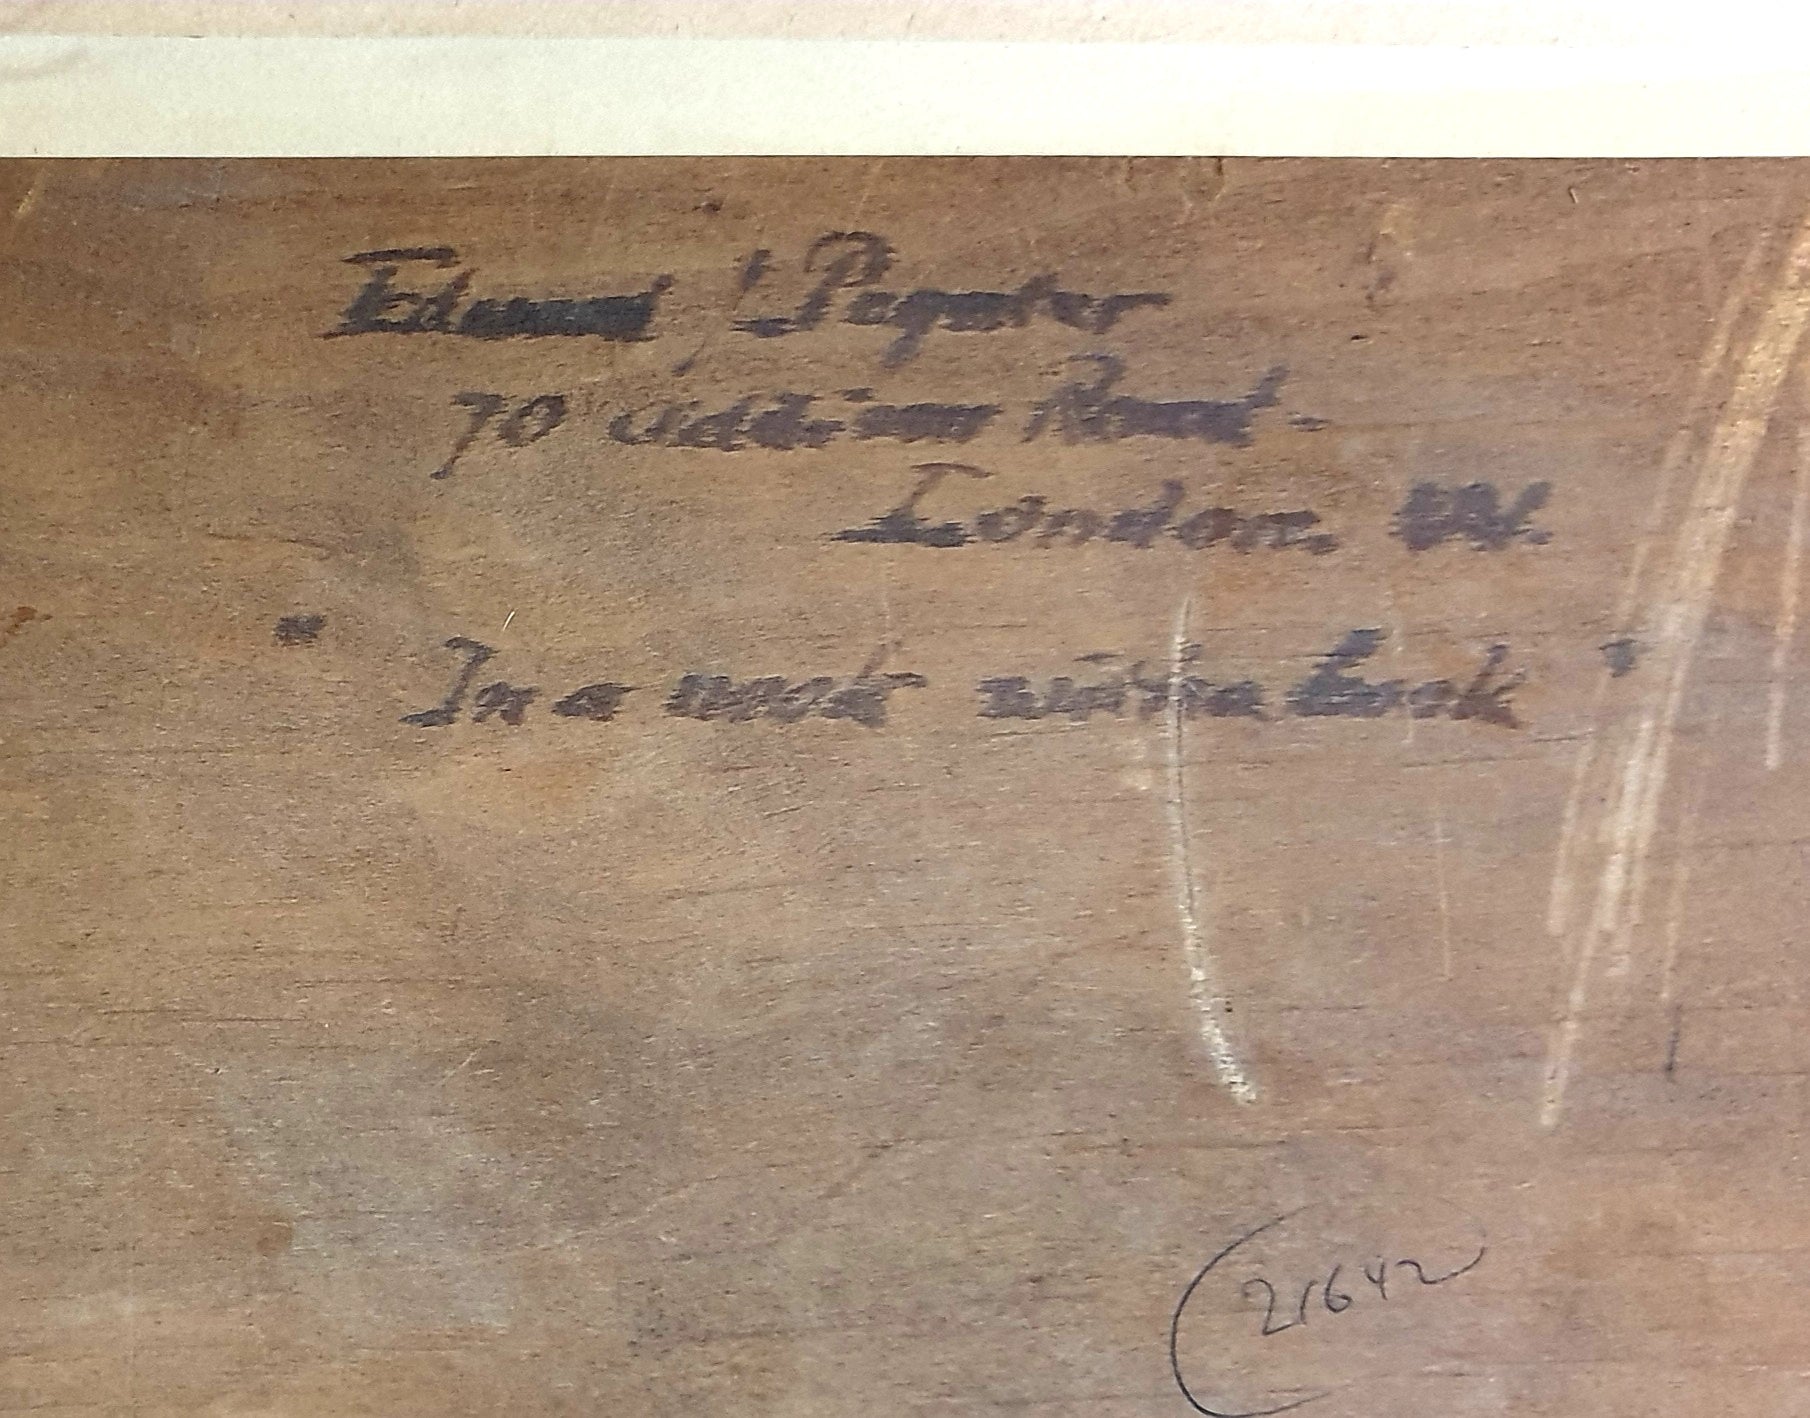 Edward J Poynter
70 Addison Road -
London. W.
" In a nook with a book "
21642